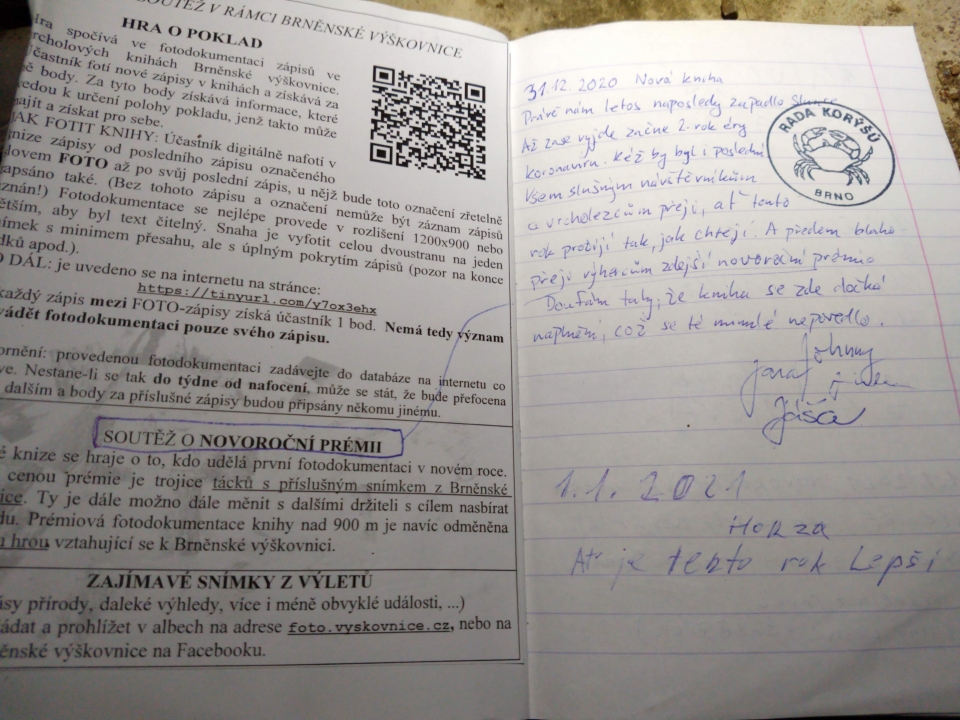 SOUTĚŽ V RÁMCI BRNĚNSKÉ VÝŠKOVNICE
HRA O POKLAD
Hra spočívá ve fotodokumentaci zápisů ve
rcholových knihách Brněnské výškovnice.
Účastník fotí nové zápisy v knihách a získává za
ě body. Za tyto body získává informace, které
edou k určení polohy pokladu, jenž takto může
najít a získat pro sebe.
JAK FOTIT KNIHY: Účastník digitálně nafotí v
nize zápisy od posledního zápisu označeného
lovem FOTO až po svůj poslední zápis, u nějž bude toto označení zřetelně
apsáno také. (Bez tohoto zápisu a označení nemůže být záznam zápisů
znán!) Fotodokumentace se nejlépe provede v rozlišení 1200x900 nebo
ětším, aby byl text čitelný. Snaha je vyfotit celou dvoustranu na jeden
nímek s minimem přesahu, ale s úplným pokrytím zápisů (pozor na konce
dků apod.).
O DÁL: je uvedeno se na internetu na stránce:
https://tinyurl.com/y7ox3ehx
každý zápis mezi FOTO-zápisy získá účastník 1 bod. Nemá tedy význam
vádět fotodokumentaci pouze svého zápisu.
ornění: provedenou fotodokumentaci zadávejte do databáze na internetu co
ve. Nestane-li se tak do týdne od nafocení, může se stát, že bude přefocena
dalším a body za příslušné zápisy budou připsány někomu jinému.
SOUTĚŽ O NOVOROČNÍ PRÉMII
é knize se hraje o to, kdo udělá první fotodokumentaci v novém roce.
cenou prémie je trojice tácků s příslušným snímkem z Brněnské
ice. Ty je dále možno dále měnit s dalšími držiteli s cílem nasbírat
du. Prémiová fotodokumentace knihy nad 900 m je navíc odměněna
u hrou vztahující se k Brněnské výškovnici.
ZAJÍMAVÉ SNÍMKY Z VÝLETŮ
ásy přírody, daleké výhledy, více i méně obvyklé události, ...)
ádat a prohlížet v albech na adrese foto.vyskovnice.cz, nebo na
ěnské výškovnice na Facebooku.
31.12.2020 Nová kniha
Právě nám letos naposledy zapadlo Slunce
Až zase vyjde začne 2. rok éry
koronaviru. Kéž by byl i poslední
Všem slušným návštěvníkům
a vrcholezcům přeji, ať tento
rok prožijí tak, jak chtějí. A předem blaho
přeji výhercům zdejší novoroční prémie
Doufám tady, že kniha se zde dočká
naplnění, což se té minulé nepovedlo.
Johnny
Jana
Jáša
RADA KORÝŠŮ
BRNO
1.1.2021
Honza
Ať je tento rok Lepší